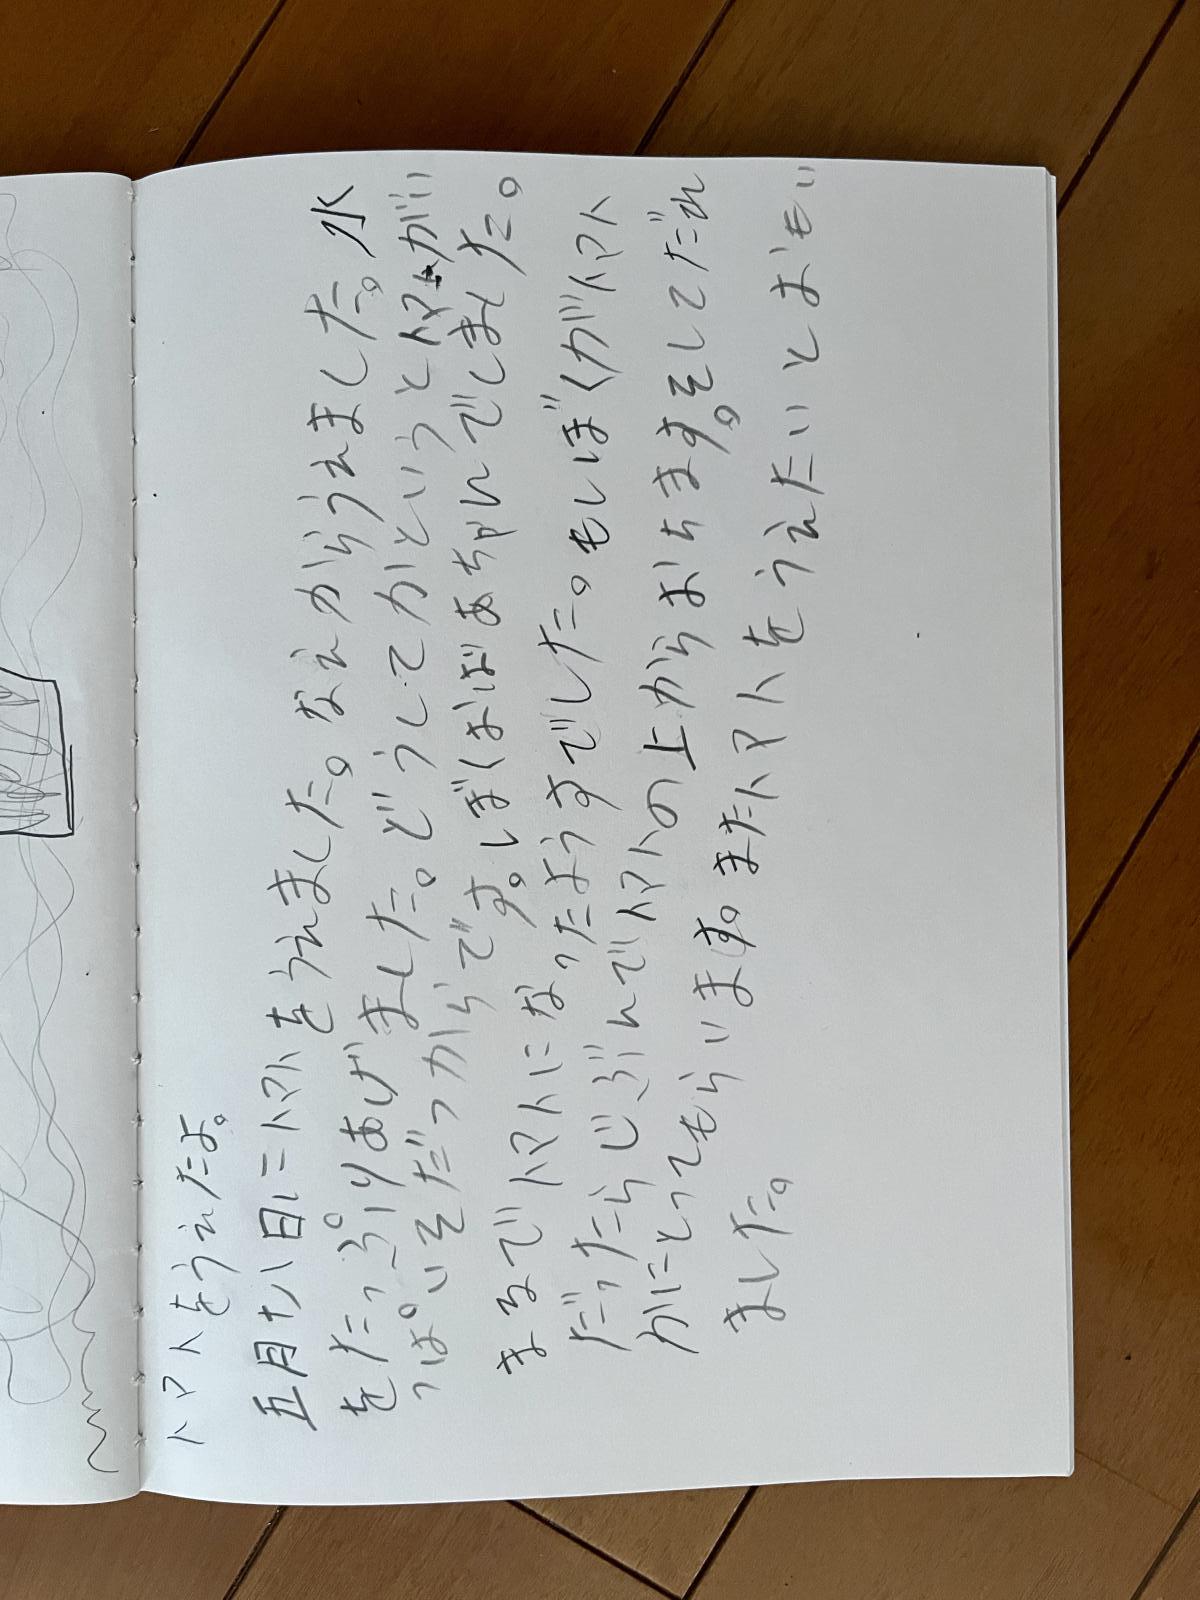 トマトをうえたよ。
五月十八日にトマトをうえました。なえからうえました。水
をたっぷりあげました。どうしてかというとトマトがい
っぱいそだつからです。しぼくはばあちゃんでしました。
まるでトマトになったようすでした。もしぼくがトマト
だったらじぶんでトマトの上からおちます。そしてだれ
かにとってもらいます。またトマトをうえたいとおもい
ました。